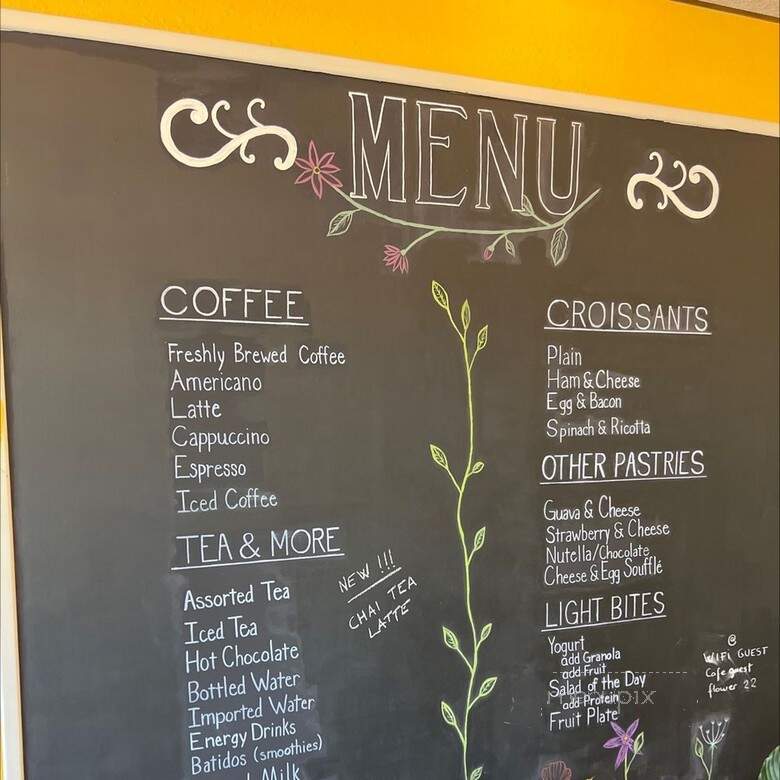 MENU
COFFEE
Freshly Brewed Coffee
Americano
Latte
Cappuccino
Espresso
Iced Coffee
TEA & MORE
Assorted Tea
Iced Tea
Hot Chocolate
Bottled Water
Imported Water
Energy Drinks
Batidos (smoothies)
Milk
NEW !!!
CHAI TEA
LATTE
CROISSANTS
Plain
Ham & Cheese
Egg & Bacon
Spinach & Ricotta
OTHER PASTRIES
Guava & Cheese
Strawberry & Cheese
Nutella/Chocolate
Cheese & Egg Soufflé
LIGHT BITES
Yogurt
add Granola
add Fruit
Salad of the Day
add Protein
Fruit Plate
@
WIFI GUEST
Cafe guest
flower 22